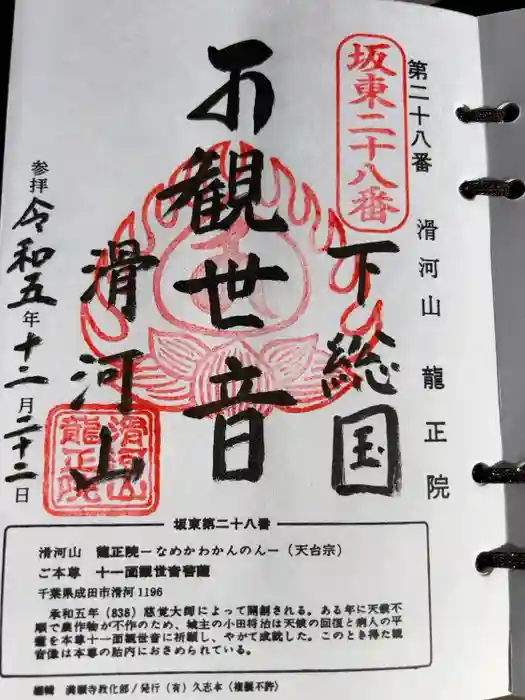 第二十八番 滑河山 龍正院
坂東二十八番
下総国
観世音
滑河山
滑河山
龍正院
参拝 令和五年十二月二十二日
坂東第二十八番
滑河山 龍正院ーなめかわかんのんー（天台宗）
ご本尊 十一面観世音菩薩
千葉県成田市滑河1196
承和五年（838）慈覚大師によって開創される。ある年に天候不
順で農作物が不作のため、城主の小田将治は天候の回復と病人の平
癒を本尊十一面観世音に祈願し、やがて成就した。このとき得た観
音像は本尊の胎内におさめられている。
編輯 満願寺教化部／発行（有）久志本（複製不許）